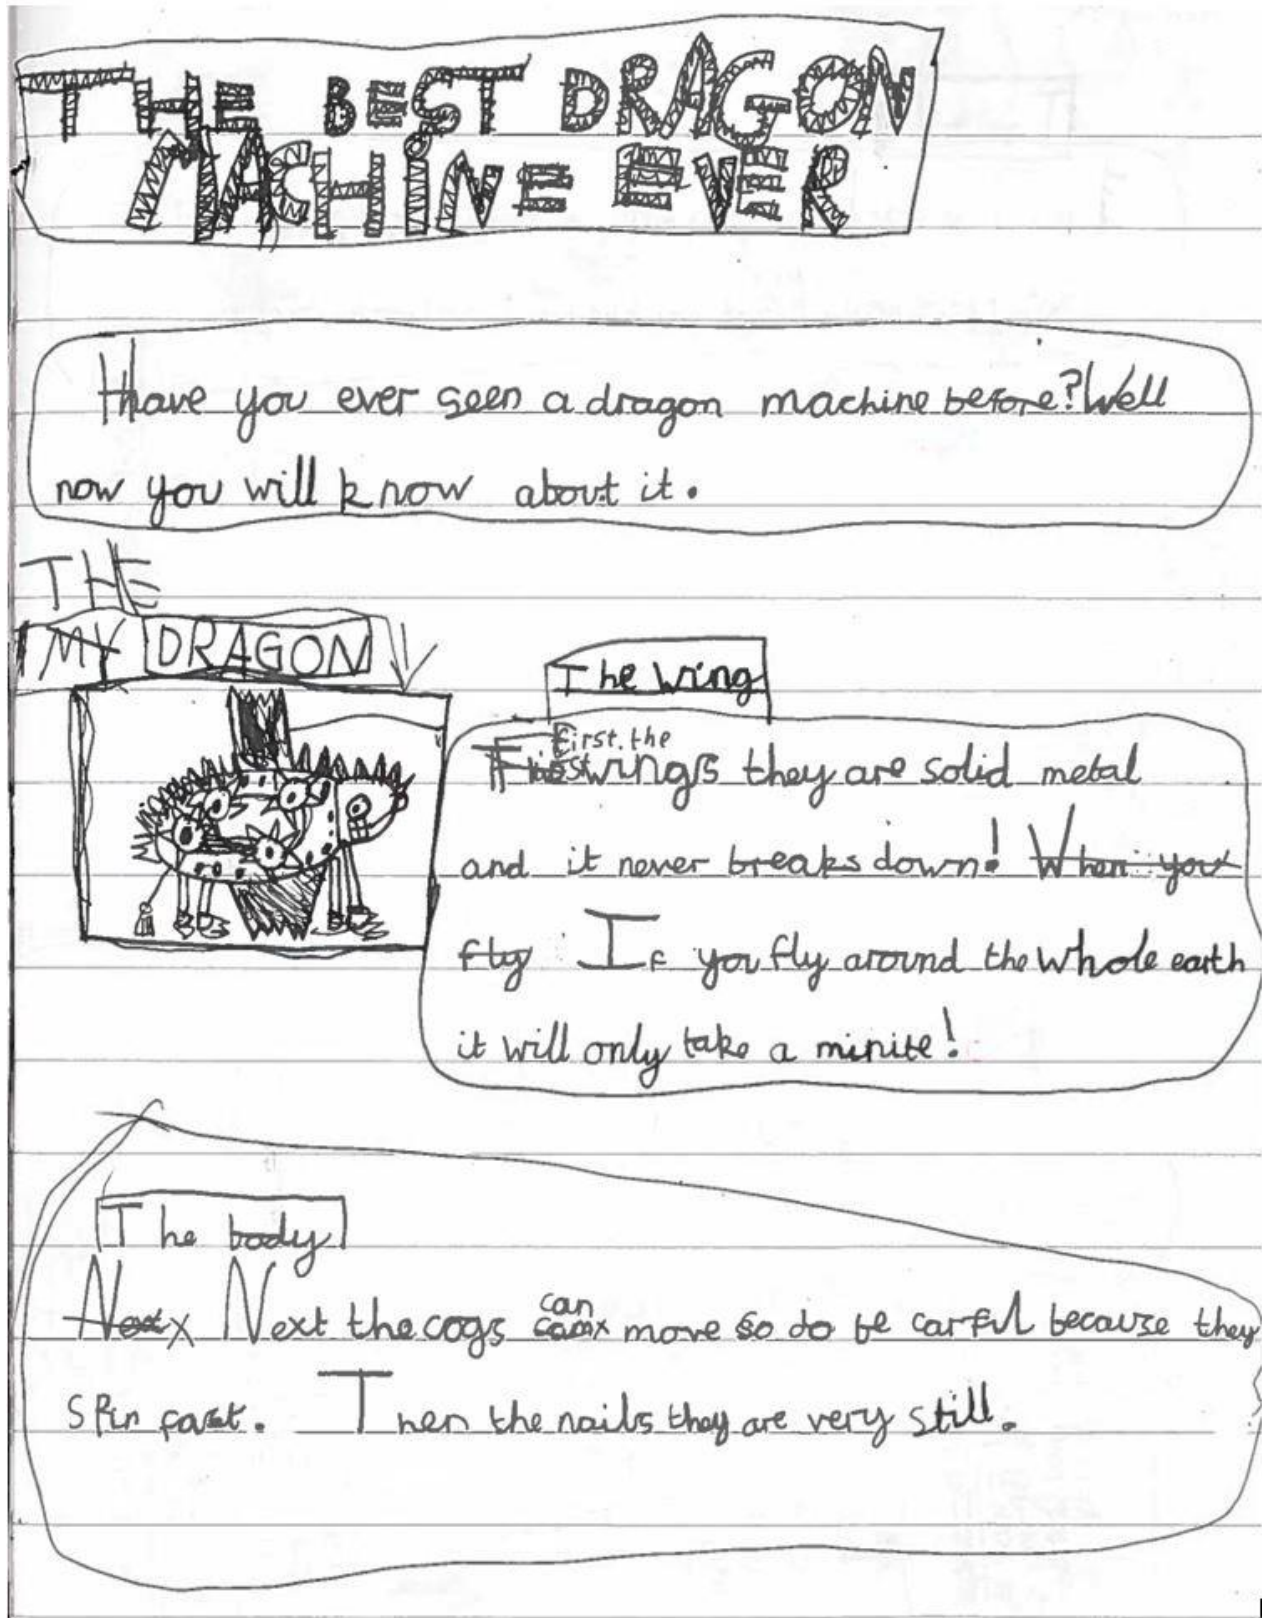 THE BEST DRAGON
MACHINE EVER
Have you ever seen a dragon machine before? Well
now you will know about it.
THE
MY DRAGON
The wing
First the
wings they are solid metal
and it never breaks down! When you
fly If you fly around the whole earth
it will only take a minite!
The body
Next the cogs can move so do be carful because they
spin fast. Then the nails they are very still.